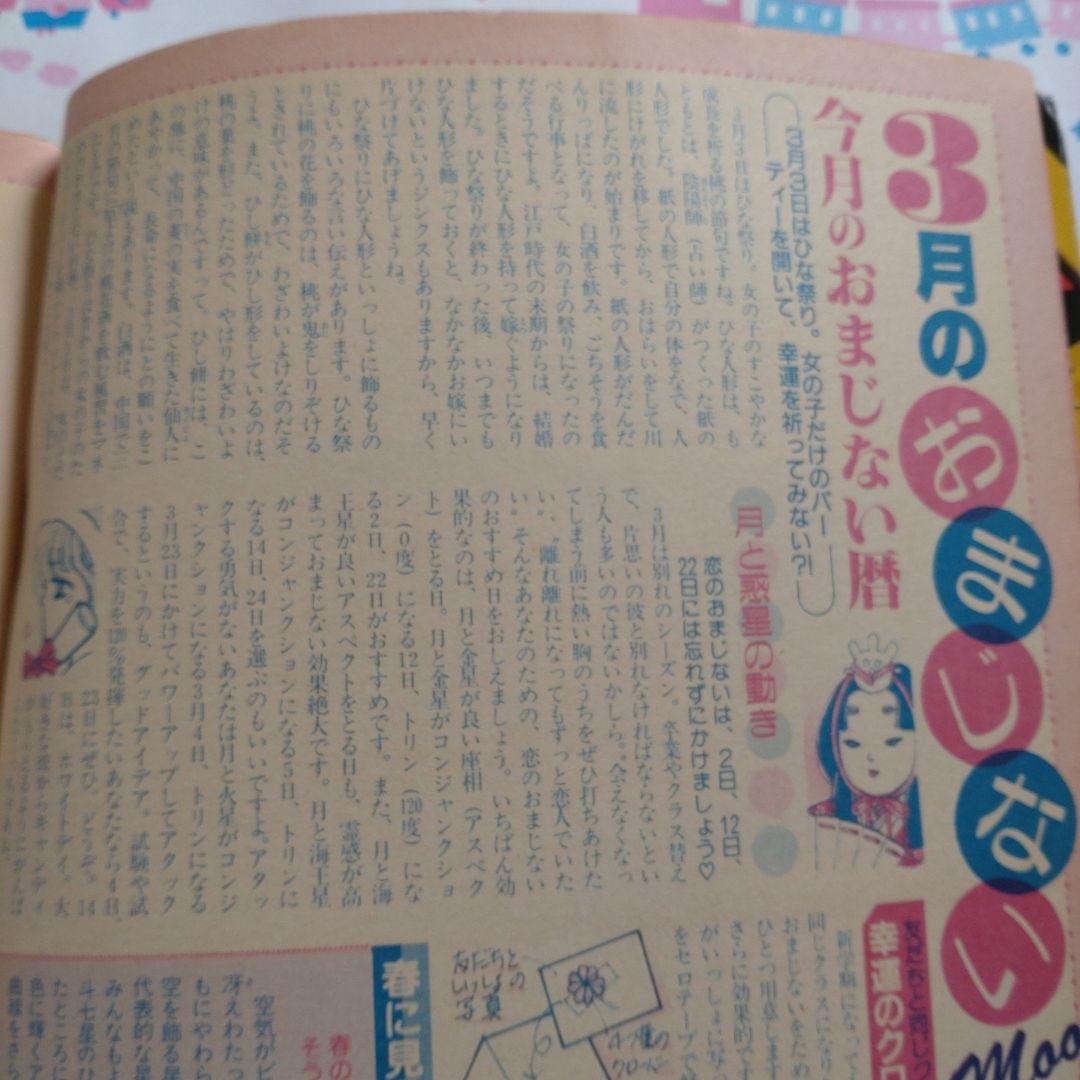 3月のおまじない
今月のおまじない暦
3月3日はひな祭り。女の子だけのパー
ティーを開いて、幸運を祈ってみない?!
3月3日はひな祭り。女の子のすこやかな
成長を祈る桃の節句ですね。ひな人形は、も
ともとは、陰陽師(占い師)がつくった紙の
人形でした。紙の人形で自分の体をなで、人
形にけがれを移してから、おはらいをして川
に流したのが始まりです。紙の人形がだんだ
んりっぱになり、白酒を飲み、ごちそうを食
べる行事となって、女の子の祭りになったの
だそうですよ。江戸時代の末期からは、結婚
するときにひな人形を持って嫁ぐようになり
ました。ひな祭りが終わった後、いつまでも
ひな人形を飾っておくと、なかなかお嫁にい
けないというジンクスもありますから、早く
片づけてあげましょうね。
ひな祭りにひな人形といっしょに飾るもの
にもいろいろな言い伝えがあります。ひな祭
りに桃の花を飾るのは、桃が鬼をしりぞける
とされているためで、わざわいよけなのだそ
うよ。また、ひし餅がひし形をしているのは、
桃の葉を形どったためで、やはりわざわいよ
けの意味があるんですって。ひし餅には、こ
の他に、中国の菱の実を食べて生きた仙人に
あやかって、長命になるようにとの願いをこ
めたという説もあります。白酒は、中国で三
月と惑星の動き
恋のおまじないは、2日、12日、
22日には忘れずにかけましょう♡
3月は別れのシーズン。卒業やクラス替え
で、片思いの彼と別れなければならないとい
う人も多いのではないかしら。会えなくなっ
てしまう前に熱い胸のうちをぜひ打ちあけた
い、離れ離れになってもずっと恋人でいた
い。そんなあなたのための、恋のおまじない
のおすすめ日をおしえましょう。いちばん効
果的なのは、月と金星が良い座相(アスペク
ト)をとる日。月と金星がコンジャンクショ
ン(0度)になる12日、トリン(120度)にな
る2日、22日がおすすめです。また、月と海
王星が良いアスペクトをとる日も、霊感が高
まっておまじない効果絶大です。月と海王星
がコンジャンクションになる5日、トリンに
なる14日、24日を選ぶのもいいですよ。アタッ
クする勇気がないあなたは月と火星がコンジ
ャンクションになる3月4日、トリンになる
3月23日にかけてパワーアップしてアタック
するというのも、グッドアイデア。試験や試
合で、実力を120%発揮したいあなたなら4日、
23日にぜひ、どうぞ。14
日は、ホワイトデイ。大
幸運のクロ
新学期になって
同じクラスになり
おまじないをため
ひとつ用意します
さらに効果的です
がいっしょに写っ
をセロテープで
友だちとの
写真
春に見
春の
空気がピ
冴えわたっ
もにやわら
空を飾る星
代表的な星
みんなもよ
斗七星のひ
たところに
色に輝くア
Moo